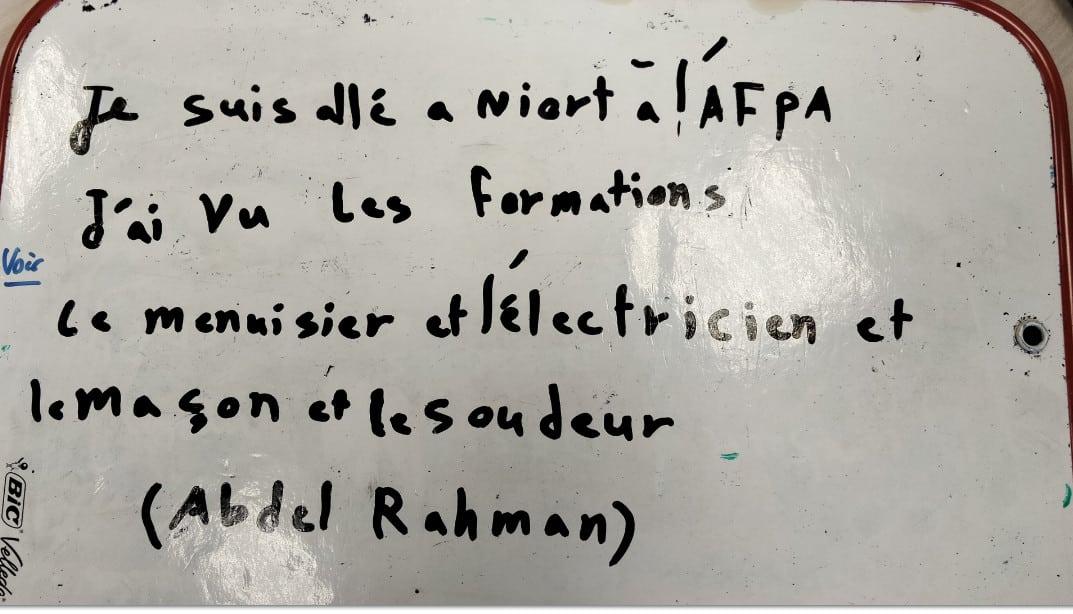 Je suis allé a Niort à l'AFPA
J'ai vu les formations
Voir
le menuisier et l'électricien et
le maçon et le soudeur
(Abdel Rahman)
BIC Velleda